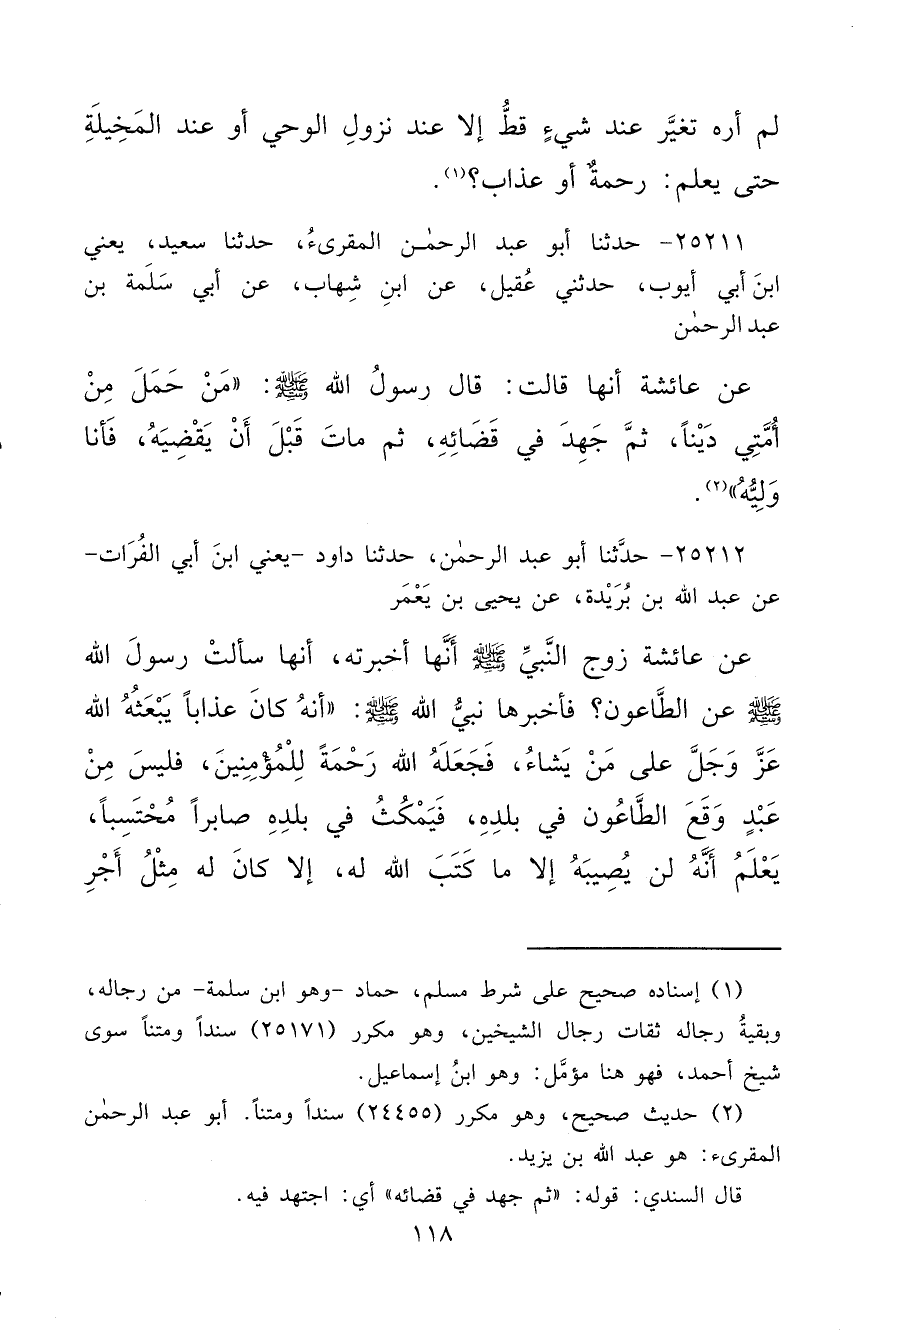 لم أره تغيَّر عند شيءٍ قطُّ إلا عند نزولِ الوحي أو عند المَخِيلَةِ
حتى يعلم: رحمةٌ أو عذاب؟(١).
٢٥٢١١- حدثنا أبو عبد الرحمٰن المقرىءُ، حدثنا سعيد، يعني
ابنَ أبي أيوب، حدثني عُقيل، عن ابنِ شِهاب، عن أبي سَلَمة بن
عبد الرحمٰن
عن عائشة أنها قالت: قال رسولُ الله ﷺ: «مَنْ حَمَلَ مِنْ
أُمَّتِي دَيْناً، ثمَّ جَهِدَ في قَضَائِهِ، ثم ماتَ قَبْلَ أَنْ يَقْضِيَهُ، فَأَنا
وَلِيُّهُ»(٢).
٢٥٢١٢- حدَّثنا أبو عبد الرحمٰن، حدثنا داود -يعني ابنَ أبي الفُرَات-
عن عبد الله بن بُرَيْدة، عن يحيى بن يَعْمَر
عن عائشة زوج النَّبيِّ ﷺ أَنَّها أخبرته، أنها سألتْ رسولَ الله
ﷺ عن الطَّاعون؟ فأخبرها نبيُّ الله ﷺ: «أنهُ كانَ عذاباً يَبْعَثُهُ الله
عَزَّ وَجَلَّ على مَنْ يَشاءُ، فَجَعَلَهُ الله رَحْمَةً لِلْمُؤْمِنِينَ، فليسَ مِنْ
عَبْدٍ وَقَعَ الطَّاعُون في بلدِهِ، فَيَمْكُثُ في بلدِهِ صابراً مُحْتَسِباً،
يَعْلَمُ أَنَّهُ لن يُصِيبَهُ إلا ما كَتَبَ الله له، إلا كانَ له مِثْلُ أَجْرِ
(١) إسناده صحيح على شرط مسلم، حماد -وهو ابن سلمة- من رجاله،
وبقيةُ رجاله ثقات رجال الشيخين، وهو مكرر (٢٥١٧١) سنداً ومتناً سوى
شيخ أحمد، فهو هنا مؤمَّل: وهو ابنُ إسماعيل.
(٢) حديث صحيح، وهو مكرر (٢٤٤٥٥) سنداً ومتناً. أبو عبد الرحمٰن
المقرىء: هو عبد الله بن يزيد.
قال السندي: قوله: «ثم جهد في قضائه» أي: اجتهد فيه.
١١٨